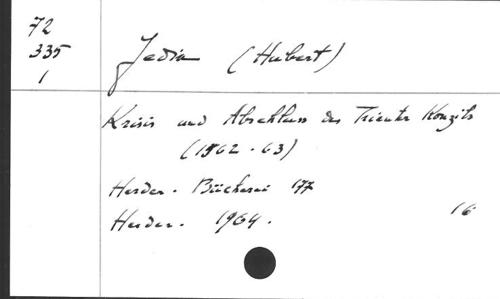 72
335
1
Jedin (Hubert)
Krisis und Abschluss des Trienter Konzils
(1562-63)
Herder-Bücherei 177
Herder. 1964. 16